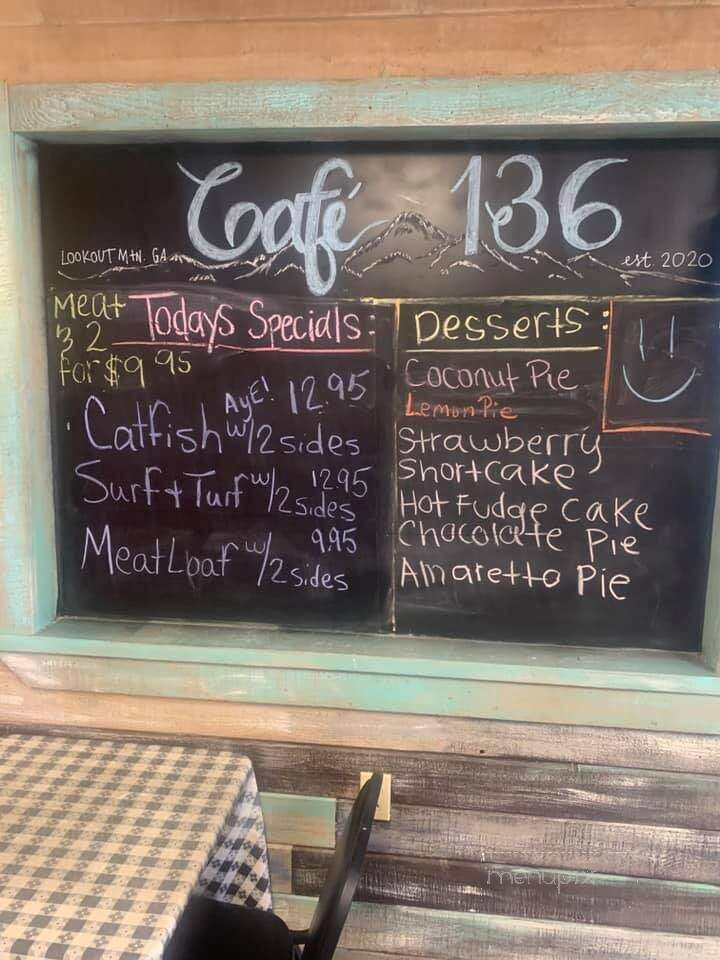 Café 136
LOOKOUT MTN. GA
est. 2020
Meat
& 2
for $9.95
Todays Specials:
AYE! 12.95
Catfish w/2 sides
Surf + Turf w/2 sides 12.95
MeatLoaf w/2 sides 9.95
Desserts:
Coconut Pie
Lemon Pie
Strawberry
Shortcake
Hot Fudge Cake
Chocolate Pie
Amaretto Pie
menupix